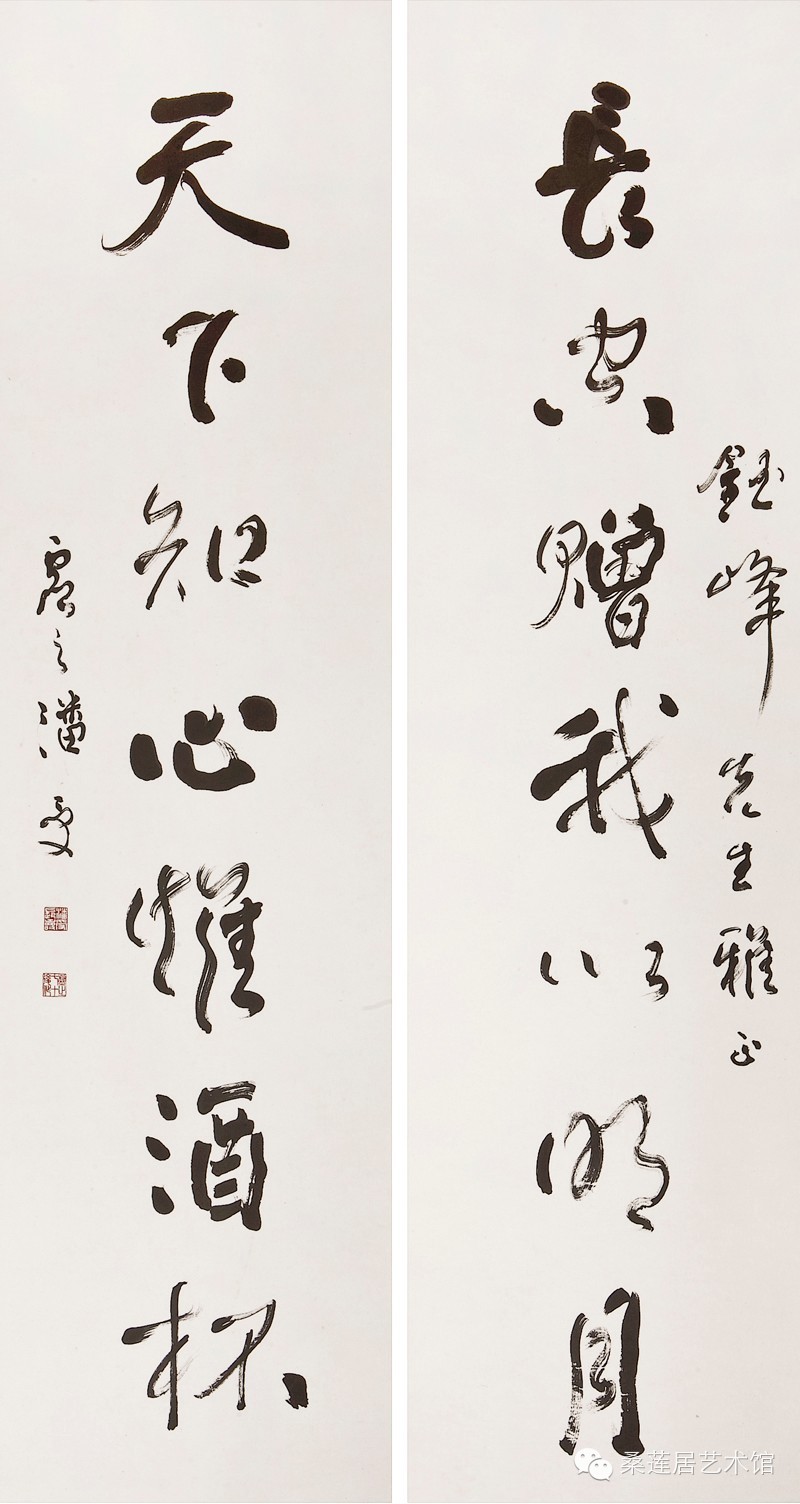 鈺峰先生雅正
長空贈我以明月
天下知心惟酒杯
虛之潘受
桑莲居艺术馆